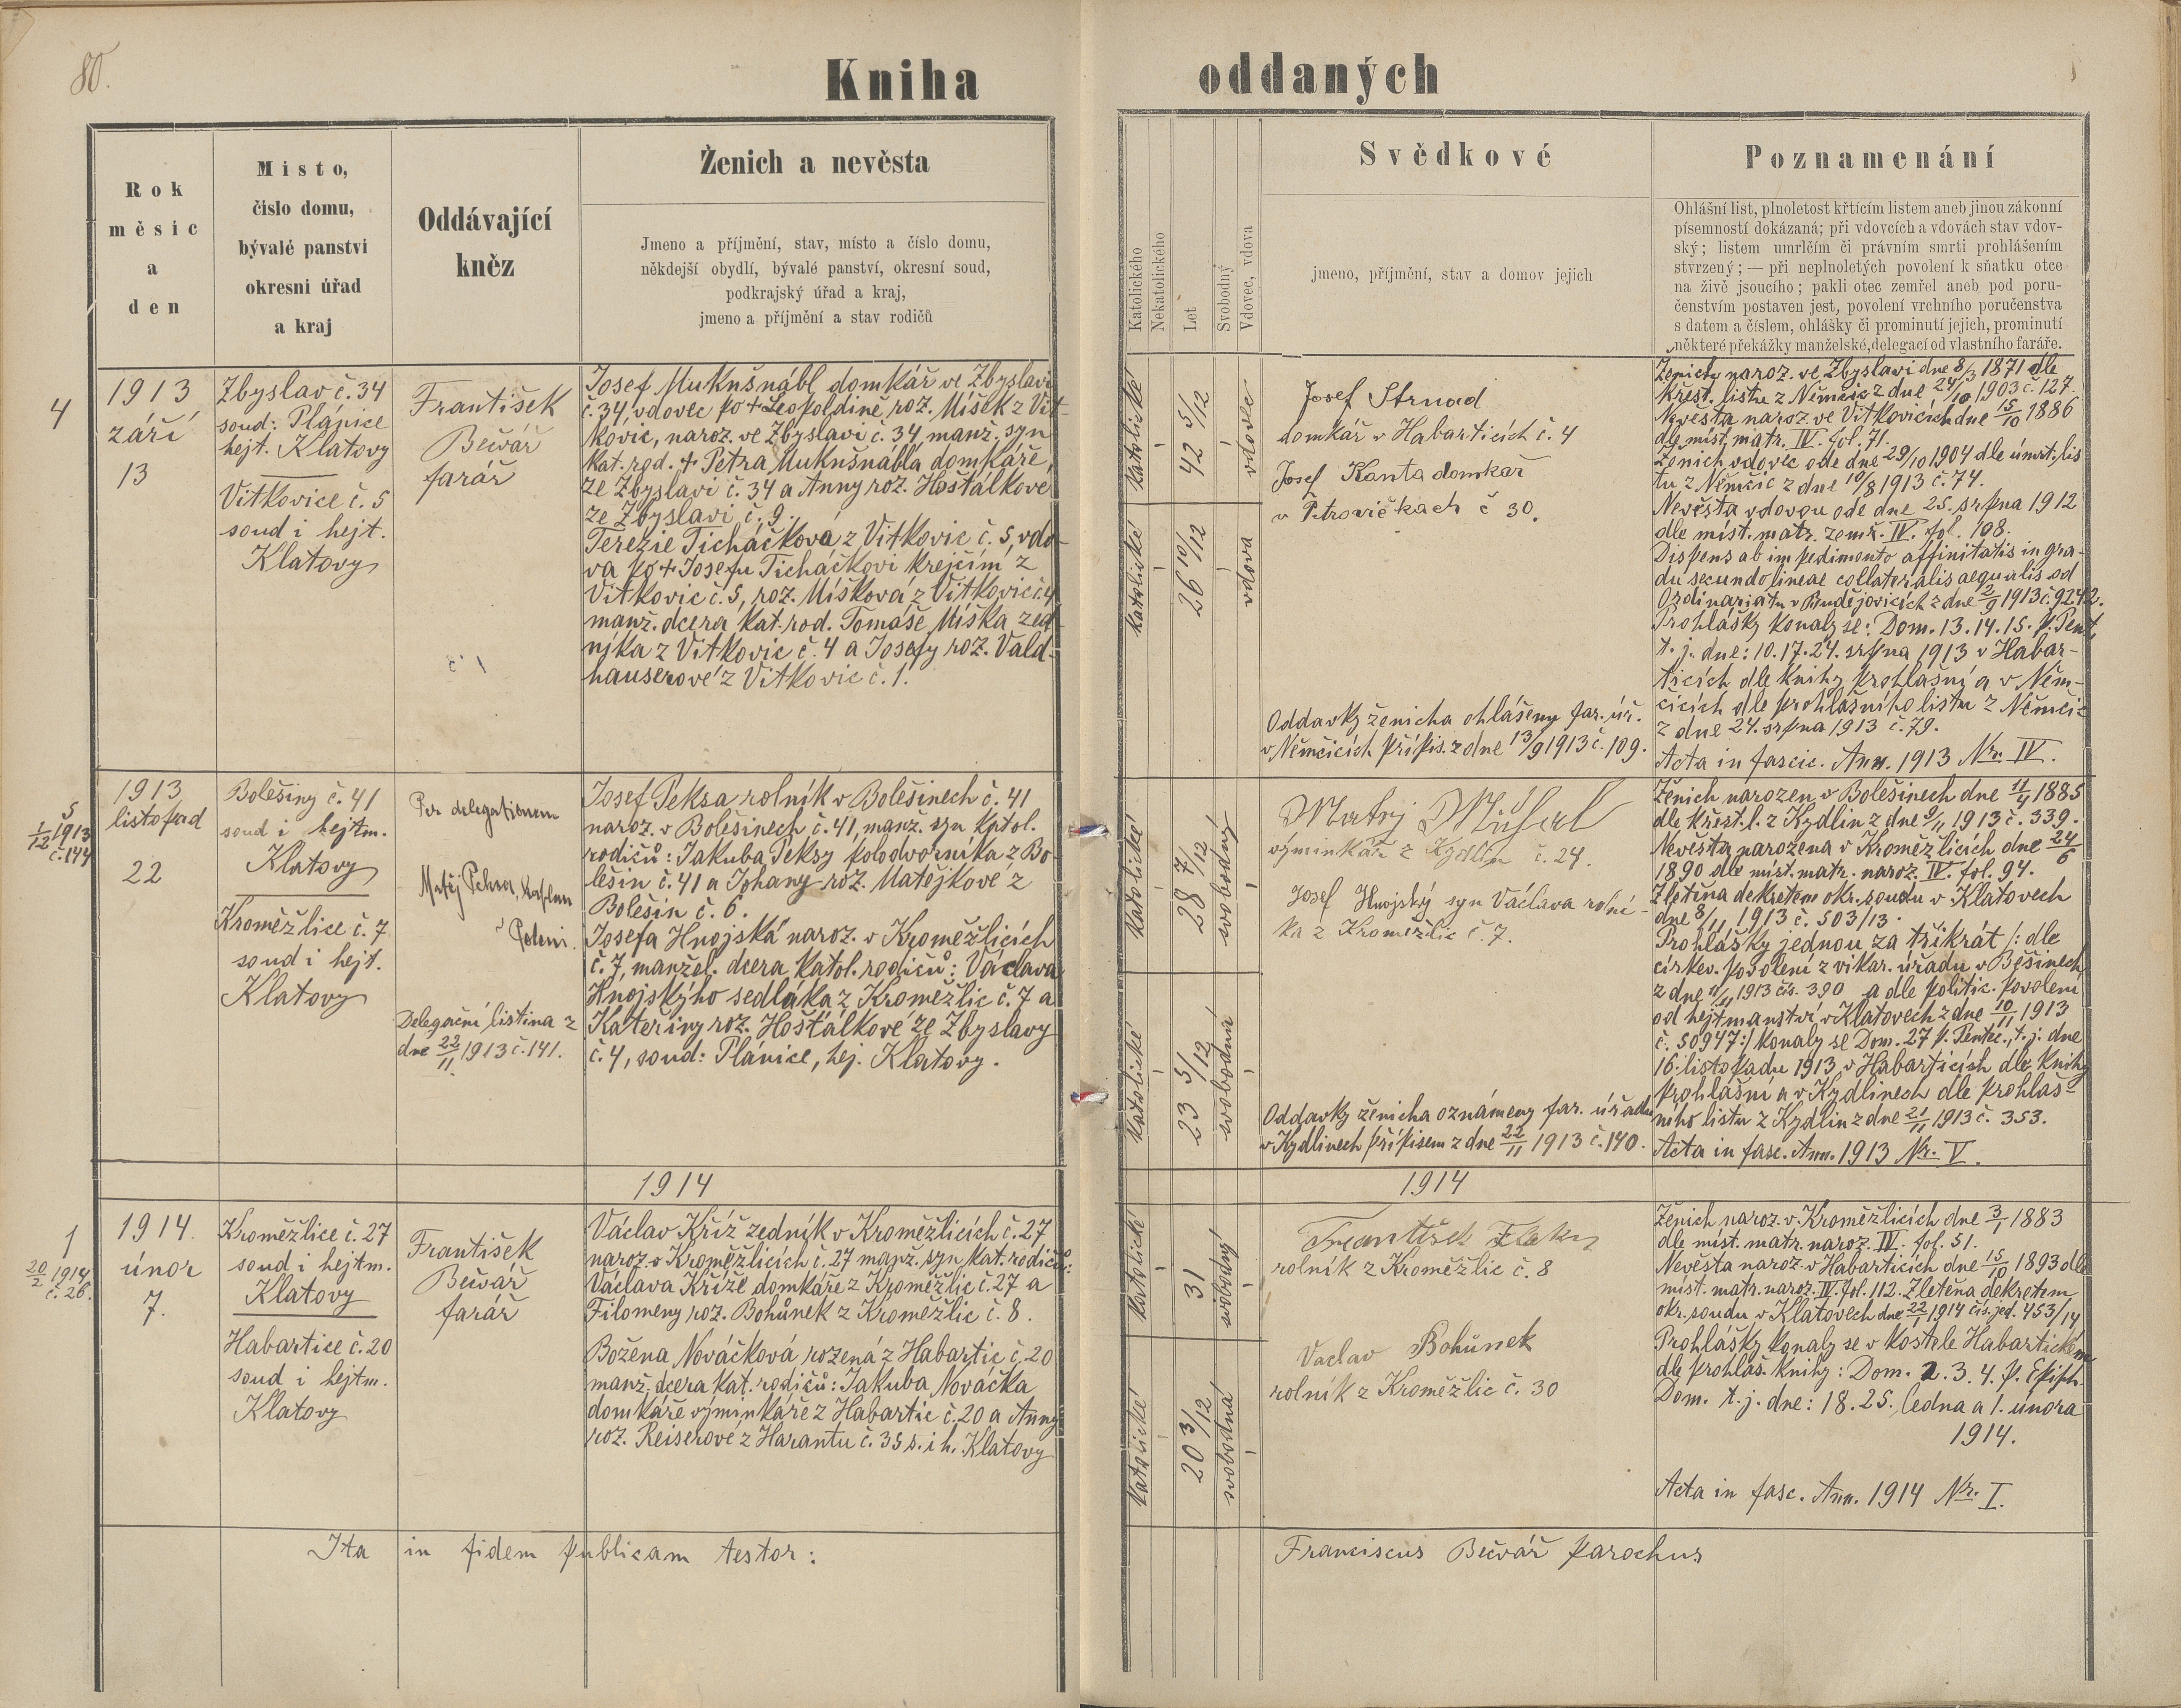 80.
Kniha oddaných
Rok
měsíc
a
den
Místo,
číslo domu,
bývalé panství
okresní úřad
a kraj
Oddávající
kněz
Ženich a nevěsta
Jmeno a příjmění, stav, místo a číslo domu,
někdejší obydlí, bývalé panství, okresní soud,
podkrajský úřad a kraj,
jmeno a příjmění a stav rodičů
Katolického
Nekatolického
Let
Svobodný
Vdovec, vdova
Svědkové
jmeno, příjmění, stav a domov jejich
Poznamenání
Ohlášní list, plnoletost křtícím listem aneb jinou zákonní
písemností dokázaná; při vdovcích a vdovách stav vdov-
ský; listem umrlčím či právním smrti prohlášením
stvrzený; — při neplnoletých povolení k sňatku otce
na živě jsoucího; pakli otec zemřel aneb pod poru-
čenstvím postaven jest, povolení vrchního poručenstva
s datem a číslem, ohlášky či prominutí jejich, prominutí
některé překážky manželské, delegací od vlastního faráře.
4
1913
září
13
Zbyslav č. 34
soud: Plánice
hejt. Klatovy
Vitkovice č. 5
soud i hejt.
Klatovy
František
Bečvář
farář
Josef Mukušnábl domkář ve Zbyslavi
č. 34, vdovec po + Leopoldině roz. Míšek z Vit-
kovic, naroz. ve Zbyslavi č. 34, manž. syn
kat. rod. + Petra Mukušnábla domkáře,
ze Zbyslavi č. 34 a Anny roz. Hošťálkove
ze Zbyslavi č. 9.
Terezie Ticháčková z Vitkovic č. 5, vdo-
va po + Josefu Ticháčkovi krejčím z
Vitkovic č. 5, roz. Míšková z Vitkovic č. 4
manž. dcera kat. rod. Tomáše Míška zed-
níka z Vitkovic č. 4 a Josefy roz. Vald-
hauserové z Vitkovic č. 1.
č 1
katolické
42 5/12
vdovec
katolické
26 10/12
vdova
Josef Strnad
domkář v Habarticích č. 4
Josef Kanta domkař
v Petrovičkach č 30.
Oddavky ženicha ohlášeny far. úř.
v Němčicích přípis. z dne 13/9 1913 č. 109.
Ženich naroz. ve Zbyslavi dne 8/3 1871 dle
křest. listu z Němčic z dne 24/10 1903 č. 127.
Nevěsta naroz. ve Vitkovicích dne 15/10 1886
dle míst. matr. IV. fol. 71.
Ženich vdovec ode dne 29/10 1904 dle úmrt. lis
tu z Němčic z dne 10/8 1913 č. 74.
Nevěsta vdovou ode dne 25. srpna 1912
dle míst. matr. zemř. IV. fol. 108.
Dispens ab impedimento affinitatis in gra-
du secundo lineae collateralis aequalis od
Ordinariatu v Budějovicích z dne 2/9 1913 č. 9242.
Prohlášky konaly se: Dom. 13. 14. 15. p. Pent.
t. j. dne: 10. 17. 24. srpna 1913 v Habar-
ticích dle knihy prohlašní a v Něm-
čicích dle prohlášního listu z Němčic
z dne 24. srpna 1913 č. 79.
Acta in fascic. Ann. 1913 Nr. IV.
5
1/12 1913
č. 144
1913
listopad
22
Bolešiny č. 41
soud i hejtm.
Klatovy
Kroměžlice č. 7
soud i hejt.
Klatovy
Per delegationem
Matěj Peksa, kaplan
v Poleni.
Delegační listina z
dne 22/11 1913 č. 141.
Josef Peksa rolník v Bolešinech č. 41
naroz. v Bolešinech č. 41, manž. syn katol.
rodičů: Jakuba Peksy polodvorníka z Bo-
lešin č. 41 a Johany roz. Matějkove z
Bolešin č. 6.
Josefa Hnojská naroz. v Kroměžlicích
č. 7, manžel. dcera katol. rodičů: Václava
Hnojského sedláka z Kroměžlic č. 7 a
Kateřiny roz. Hošťálkové ze Zbyslavy
č. 4, soud: Plánice, hej. Klatovy.
katolické
28 7/12
svobodný
katolické
23 5/12
svobodná
Matěj
výminkář z Kydlin č. 24.
Josef Hnojský syn Václava rolní-
ka z Kroměžlic č. 7.
Oddavky ženicha oznámeny far. úřadu
v Kydlinech přípisem z dne 22/11 1913 č. 140.
Ženich narozen v Bolešinech dne 11/4 1885
dle křest. l. z Kydlin z dne 9/11 1913 č. 339.
Nevěsta narozena v Kroměžlicích dne 24/6
1890 dle míst. matr. naroz. IV. fol. 94.
Zletěna dekretem okr. soudu v Klatovech
dne 8/11 1913 č. 503/13.
Prohlášky jednou za třikrát /: dle
církev. povolení z vikar. úřadu v Běšinech
z dne 11/11 1913 čís. 390 a dle politic. povolení
od hejtmanství v Klatovech z dne 10/11 1913
č. 50947:/ konaly se Dom. 27 p. Pentec., t. j. dne
16. listopadu 1913 v Habarticích dle knihy
prohlašní a v Kydlinech dle prohláš-
ního listu z Kydlin z dne 21/11 1913 č. 353.
Acta in fasc. Ann. 1913 Nr. V.
1914
1914
1
20/2 1914
č. 26.
1914.
únor
7.
Kroměžlice č. 27
soud i hejtm.
Klatovy
Habartice č. 20
soud i hejtm.
Klatovy
František
Bečvář
farář
Václav Kříž zedník v Kroměžlicích č. 27
naroz. v Kroměžlicích č. 27 manž. syn kat. rodičů:
Václava Kříže domkáře z Kroměžlic č. 27 a
Filomeny roz. Bohůnek z Kroměžlic č. 8.
Božena Nováčková rozená z Habartic č. 20
manž. dcera kat. rodičů: Jakuba Nováčka
domkáře výminkáře z Habartic č. 20 a Anny
roz. Reiserové z Harantu č. 35 s. i h. Klatovy
katolické
31
svobodný
katolické
20 3/12
svobodná
František
rolník z Kroměžlic č. 8
Vaclav Bohůnek
rolník z Kroměžlic č. 30
Ženich naroz. v Kroměžlicích dne 3/1 1883
dle míst. matr. naroz. IV. fol. 51.
Nevěsta naroz. v Habarticích dne 15/10 1893 dle
míst. matr. naroz. IV. fol. 112. Zletěna dekretem
okr. soudu v Klatovech dne 22/1 1914 čís. jed. 453/14
Prohlášky konaly se v kostele Habartickém
dle prohláš. knihy: Dom. 2. 3. 4. p. Epiph.
Dom. t. j. dne: 18. 25. ledna a 1. února
1914.
Acta in fasc. Ann. 1914 Nr. I.
Ita in fidem publicam testor:
Franciscus Bečvář parochus